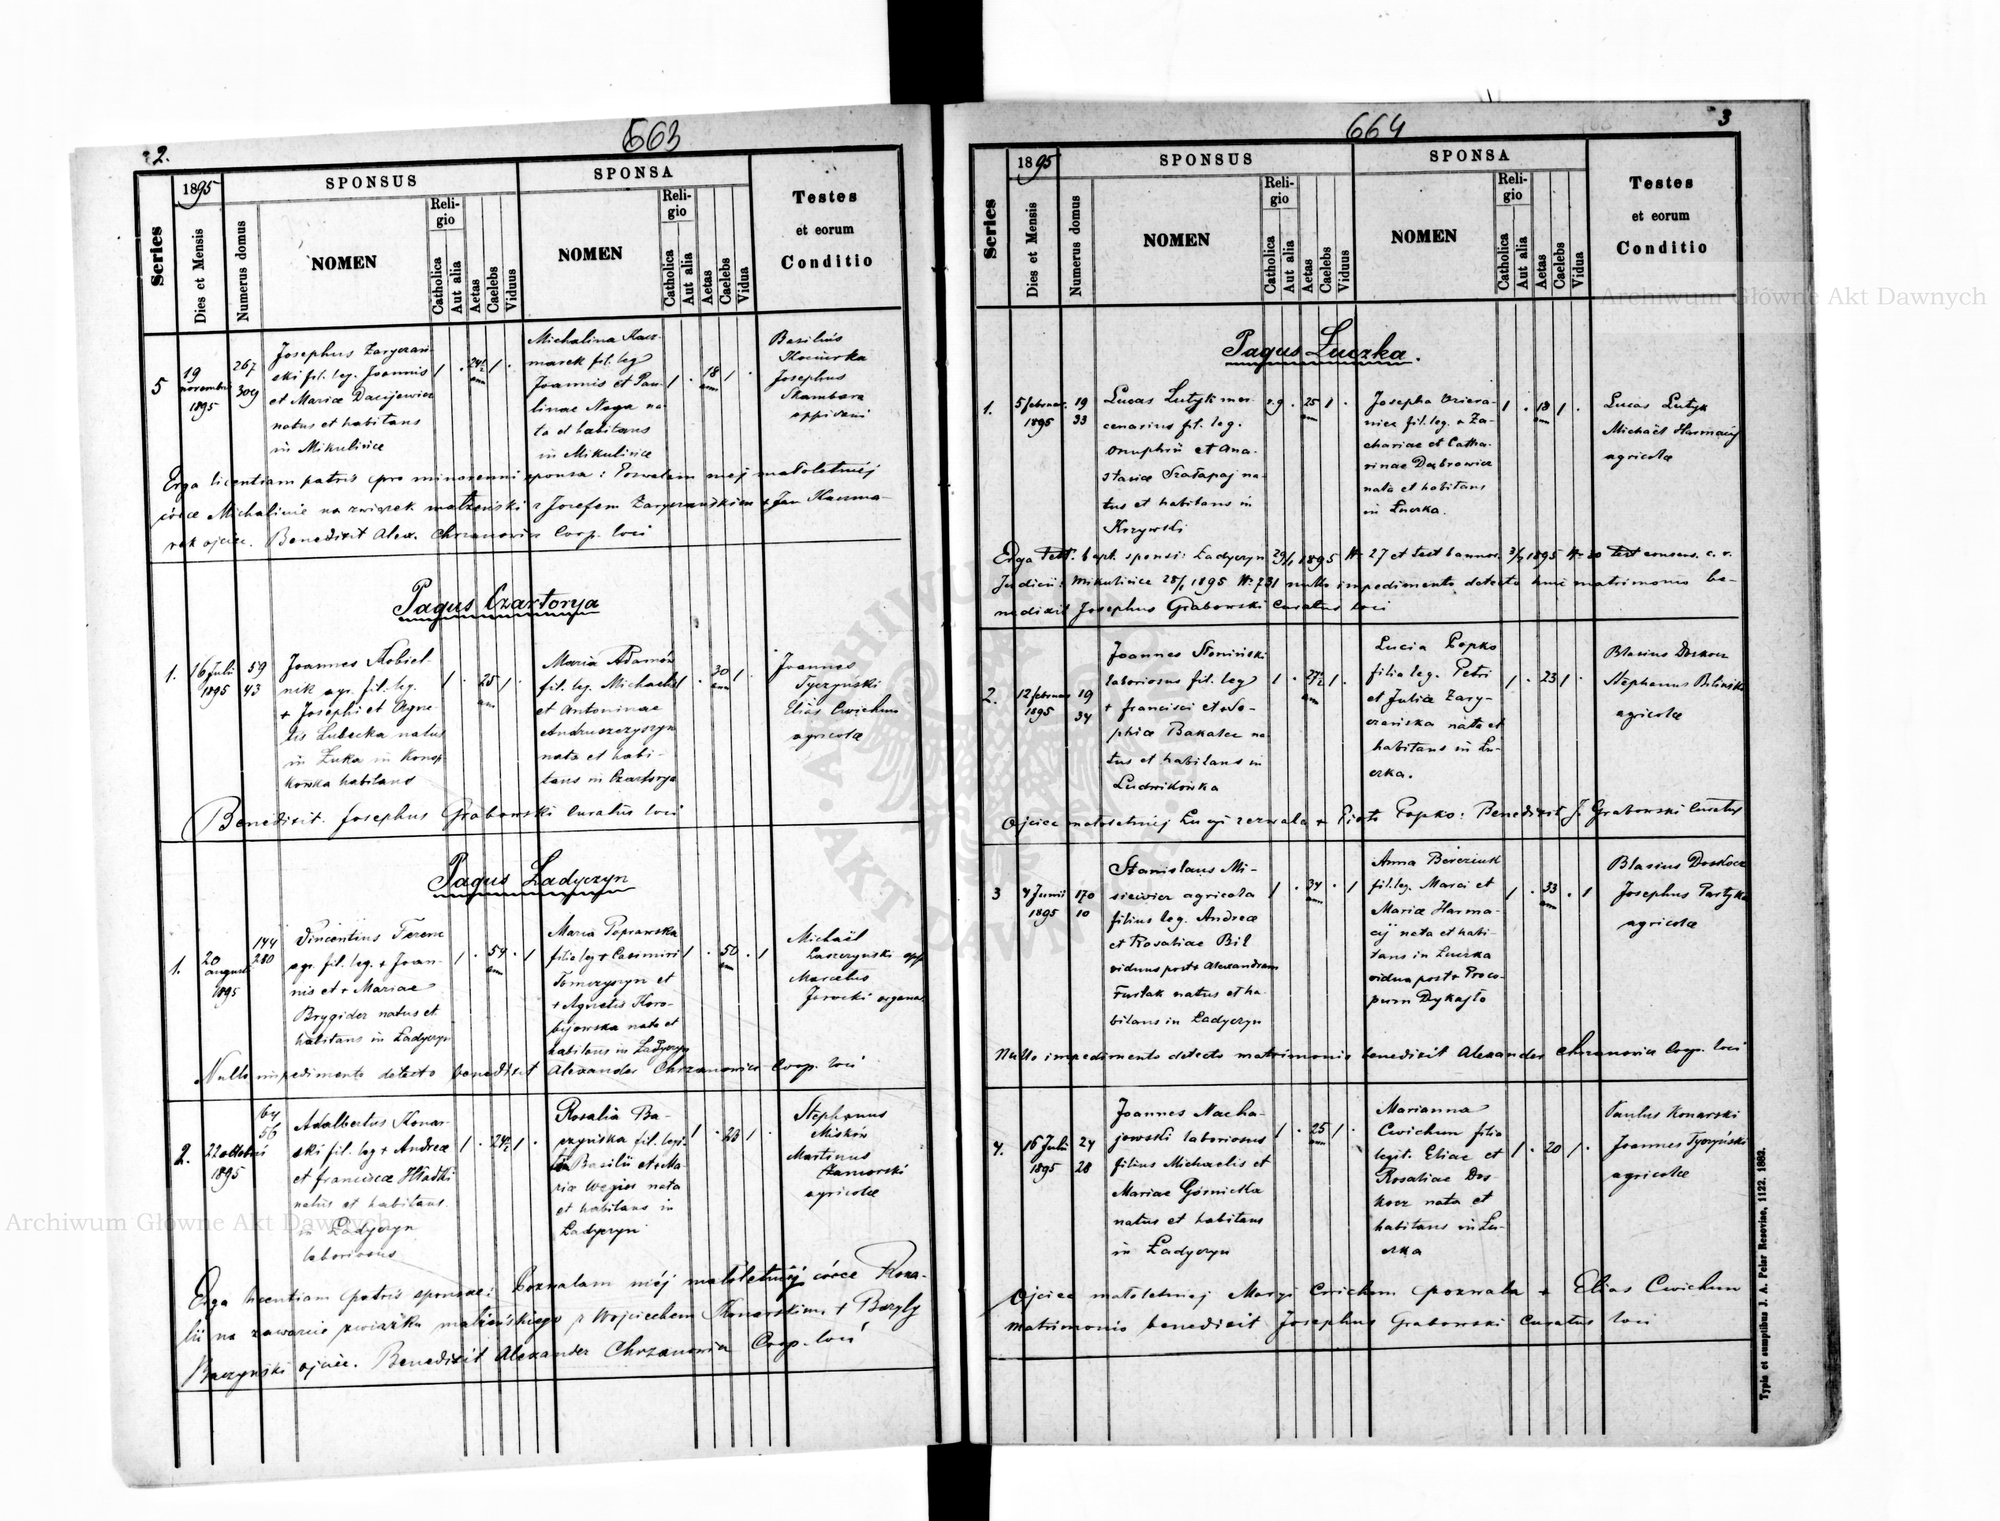 2.
663
Series
1895
Dies et Mensis
Numerus domus
SPONSUS
NOMEN
Religio
Catholica
Aut alia
Aetas
Caelebs
Viduus
SPONSA
NOMEN
Religio
Catholica
Aut alia
Aetas
Caelebs
Vidua
Testes
et eorum
Conditio
5
19
novembris
1895
267
309
Josephus Zaryczań
ski fil. leg. Joannis
et Mariae Dacijewicz
natus et habitans
in Mikulińce
24½
ann
Michalina Kacz
marek fil. leg
Joannis et Pau
linae Naga na
ta et habitans
in Mikulińce
18
ann
Basilius
Kociurka
Josephus
Skambara
oppidani
Erga licentiam patris pro minorenni sponsa: Pozwalam mej małoletniéj
córce Michalinie na związek małżeński z Józefem Zaryczańskim + Jan Kaczma-
rek ojciec. Benedixit Alex. Chrzanowicz Coop. loci
Pagus Czartorya
1.
16 Julii
1895
59
43
Joannes Kobiel
nik agr. fil. leg.
+ Josephi et Agne
tis Lubecka natus
in Łuka in Konop
kówka habitans
25
ann
Maria Adamów
fil. leg. Michaelis
et Antoninae
Andruszczyszyn
nata et habi-
tans in Czartorya
30
ann
Joannes
Tyczyński
Elias Cwichun
agricolae
Benedixit Josephus Grabowski Curatus loci
Pagus Ładyczyn
1.
20
augusti
1895
144
280
Vincentius Ferenc
agr. fil. leg. + Joan-
nis et + Mariae
Brygider natus et
habitans in Ładyczyn
54
ann
Maria Poprawska
filia leg + Casimiri
Tomczyszyn et
+ Agnetis Horo-
byjowska nata et
habitans in Ładyczyn
50
ann
Michaël
Laszczyński opp
Marcelus
Jerocki organar
Nullo impedimento detecto benedixit Alexander Chrzanowicz Coop. loci
2.
22 octobris
1895
64
56
Adalbertus Konar-
ski fil. leg + Andreae
et franciscae Hładki
natus et habitans
in Ładyczyn
laboriosus
24½
Rosalia Ba-
czyńska fil. legi-
Basilii et + Ma-
riae Węgier nata
et habitans in
Ładyczyn
23
Stephanus
Miśków
Martinus
Zamorski
agricolae
Erga licentiam patris sponsae: Pozwalam mojéj małoletniéj córce Roza-
lii na zawarcie związku małżeńskiego z Wojciechem Konarskim + Bazyly
Baczyński ojciec. Benedixit Alexander Chrzanowicz Coop. loci
3
664
Series
1895
Dies et Mensis
Numerus domus
SPONSUS
NOMEN
Religio
Catholica
Aut alia
Aetas
Caelebs
Viduus
SPONSA
NOMEN
Religio
Catholica
Aut alia
Aetas
Caelebs
Vidua
Testes
et eorum
Conditio
Pagus Łuczka.
1.
5 februar.
1895
19
33
Lucas Lutyk mer-
cenarius fil. leg.
Onuphrii et Ana-
stasiae Szałapaj na-
tus et habitans in
Krzywki
r. g.
25
ann
Josepha
fil. leg. + Za-
chariae et Catha-
rinae Dąbrowicz
nata et habitans
in Łuczka.
18
ann
Lucas Lutyk
Michaël Harmacij
agricolae
Erga test. bapt. sponsi: Ładyczyn 29/1 1895 Nr 27 et test bannor. 3/2 1895 Nr test consens. c. r.
Judicii: Mikulińce 25/1 1895 Nr 731 nullo impedimento detecto huic matrimonio be-
nedixit Josephus Grabowski Curatus loci
2.
12 februar
1895
19
34
Joannes Słoniński
laboriosus fil. leg
+ francisci et + So-
phiae Bakalec na
tus et habitans in
Ludwikówka
27½
ann
Lucia Popko
filia leg. Petri
et Julia Zary-
czańska nata et
habitans in Łu-
czka.
23
Blasius Doskocz
Stephanus Biliński
agricolae
Ojciec małoletniéj Łucyi zezwala + Piotr Popko: Benedixit J. Grabowski Curatus
3
4 Junii
1895
170
10
Stanislaus Mi-
siewicz agricola
filius leg. Andreae
et Rosaliae Bil
viduus post + Alexandram
Furtak natus et ha-
bitans in Ładyczyn
34
ann
Anna Bereziuk
fil. leg. Marci et
Mariae Harma-
cij nata et habi-
tans in Łuczka
vidua post + Proco-
pium Dykajło
33
ann
Blasius Doskocz
Josephus Partyka
agricolae
Nullo impedimento detecto matrimonio benedixit Alexander Chrzanowicz Coop. loci
4.
16 Julii
1895
24
28
Joannes Nacha-
jowski laboriosus
filius Michaelis et
Mariae Górniekka
natus et habitans
in Ładyczyn
25
ann
Marianna
Cwichun filia
legit. Eliae et
Rosaliae Dos-
kocz nata et
habitans in Łu-
czka
20
Paulus Konarski
Joannes Tyczyński
agricolae
Ojciec małoletniej Maryi Cwichun pozwala + Elias Cwichun
Matrimonio benedixit Josephus Grabowski Curatus loci
Typis et sumptibus J. A. Pelar Resoviae, 1122. 1882.
Archiwum Główne Akt Dawnych
Archiwum Główne Akt Dawnych